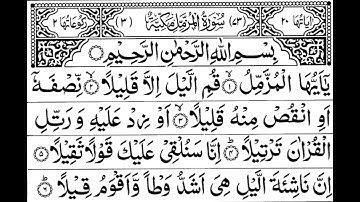 اٰیَاتُهَا ٢٠ (٧٣) سُوْرَةُ الْمُزَّمِّلِ مَكِّیَّةٌ (٣) رُكُوْعَاتُهَا ٢
بِسْمِ اللّٰهِ الرَّحْمٰنِ الرَّحِیْمِ
یٰۤاَیُّهَا الْمُزَّمِّلُ ۙ﴿١﴾ قُمِ الَّیْلَ اِلَّا قَلِیْلًا ۙ﴿٢﴾ نِّصْفَهٗۤ
اَوِ انْقُصْ مِنْهُ قَلِیْلًا ۙ﴿٣﴾ اَوْ زِدْ عَلَیْهِ وَ رَتِّلِ
الْقُرْاٰنَ تَرْتِیْلًا ؕ﴿٤﴾ اِنَّا سَنُلْقِیْ عَلَیْكَ قَوْلًا ثَقِیْلًا ﴿٥﴾
اِنَّ نَاشِئَةَ الَّیْلِ هِیَ اَشَدُّ وَطْاً وَّ اَقْوَمُ قِیْلًا ؕ﴿٦﴾